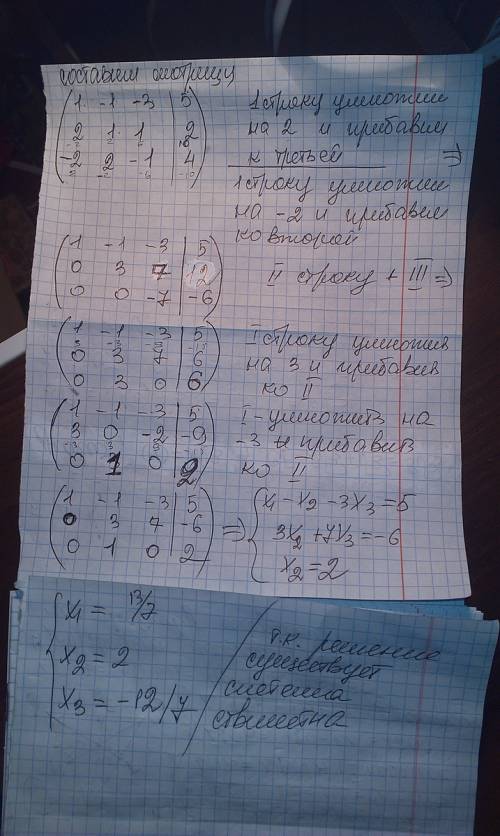 составим матрицу
1 -1 -3 | 5
2 1 1 | 2
-2 2 -1 | 4
1 строку умножим
на 2 и прибавим
к третьей =>
1 строку умножим
на -2 и прибавим
ко второй
1 -1 -3 | 5
0 3 7 | 12
0 0 -7 | -6
II строку + III =>
1 -1 -3 | 5
0 3 7 | 6
0 3 0 | 6
I строку умножив
на 3 и прибавив
ко II
1 -1 -3 | 5
3 0 -2 | -9
0 1 0 | 2
I - умножить на
-3 и прибавить
ко II
1 -1 -3 | 5
0 3 7 | -6
0 1 0 | 2
=> { x1 - x2 - 3x3 = 5
3x2 + 7x3 = -6
x2 = 2
x1 = 13/7
x2 = 2
x3 = -12/7
т.к. решение
существует
система